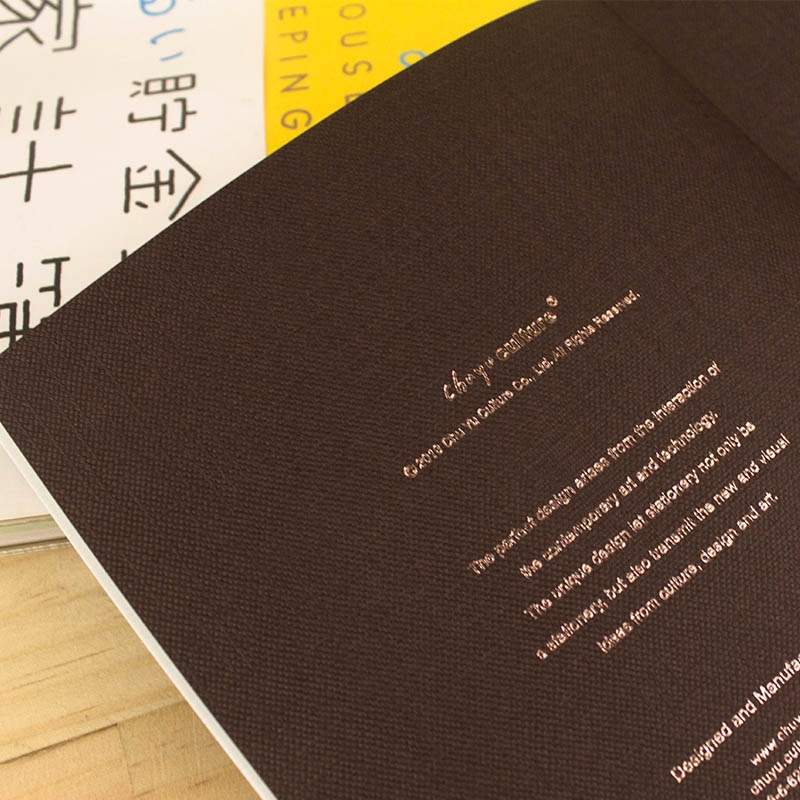 chuyu culture®
©2013 Chu Yu Culture Co., Ltd. All Rights Reserved.
The perfect design arises from the interaction of
the contemporary art and technology.
The unique design let stationery not only be
a stationery; but also transmit the new and visual
ideas from culture, design and art.
Designed and Manufac
www.chuy
chuyu.cul
貯金
家計
OUSE
EPING